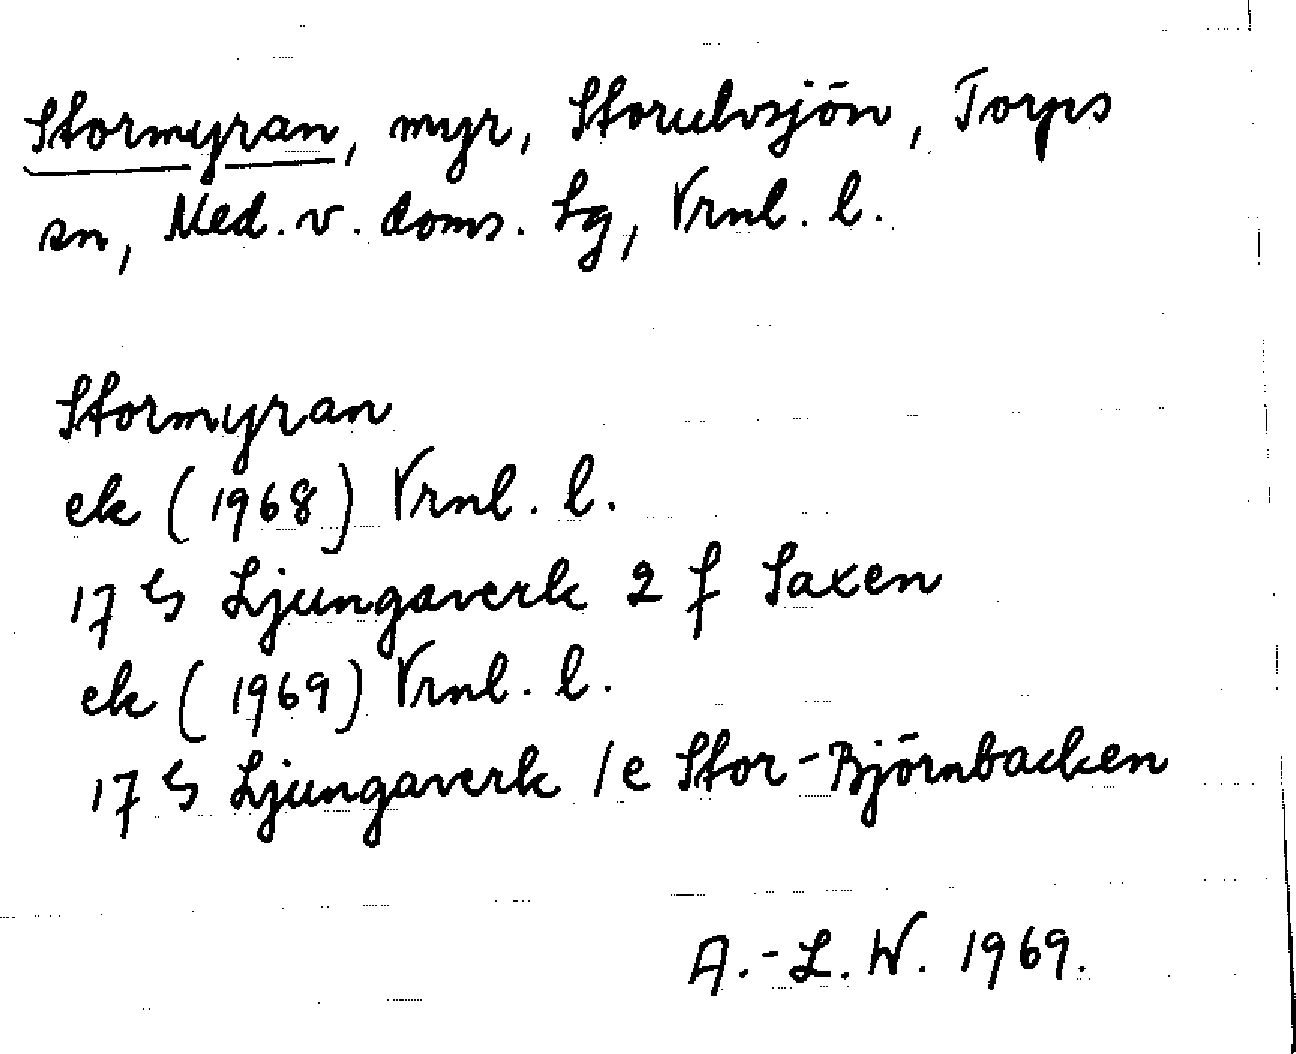 Stormyran, myr, Storulvsjön, Torps
sn, Med. v. doms. Lg, Vrnl. l.
Stormyran
ek (1968) Vrnl. l.
17 G Ljungaverk 2 f Saxen
ek (1969) Vrnl. l.
17 G Ljungaverk 1e Stor-Björnbacken
A.-L. W. 1969.